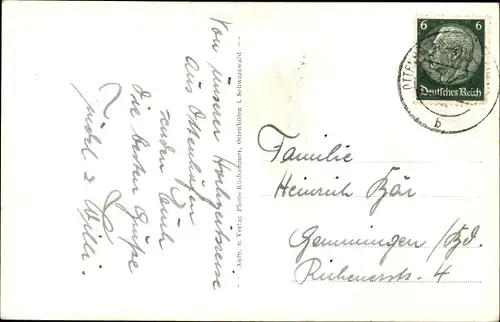 Von unserer Hochzeitsreise
aus Ottenhöfen
senden Euch
die besten Grüße
& Willi.
Aufn. u. Verlag Photo-Käshammer, Ottenhöfen i. Schwarzwald
6 6
Deutsches Reich
OTTEN
b
Familie
Heinrich Bär
Gemmingen /Bd.
4